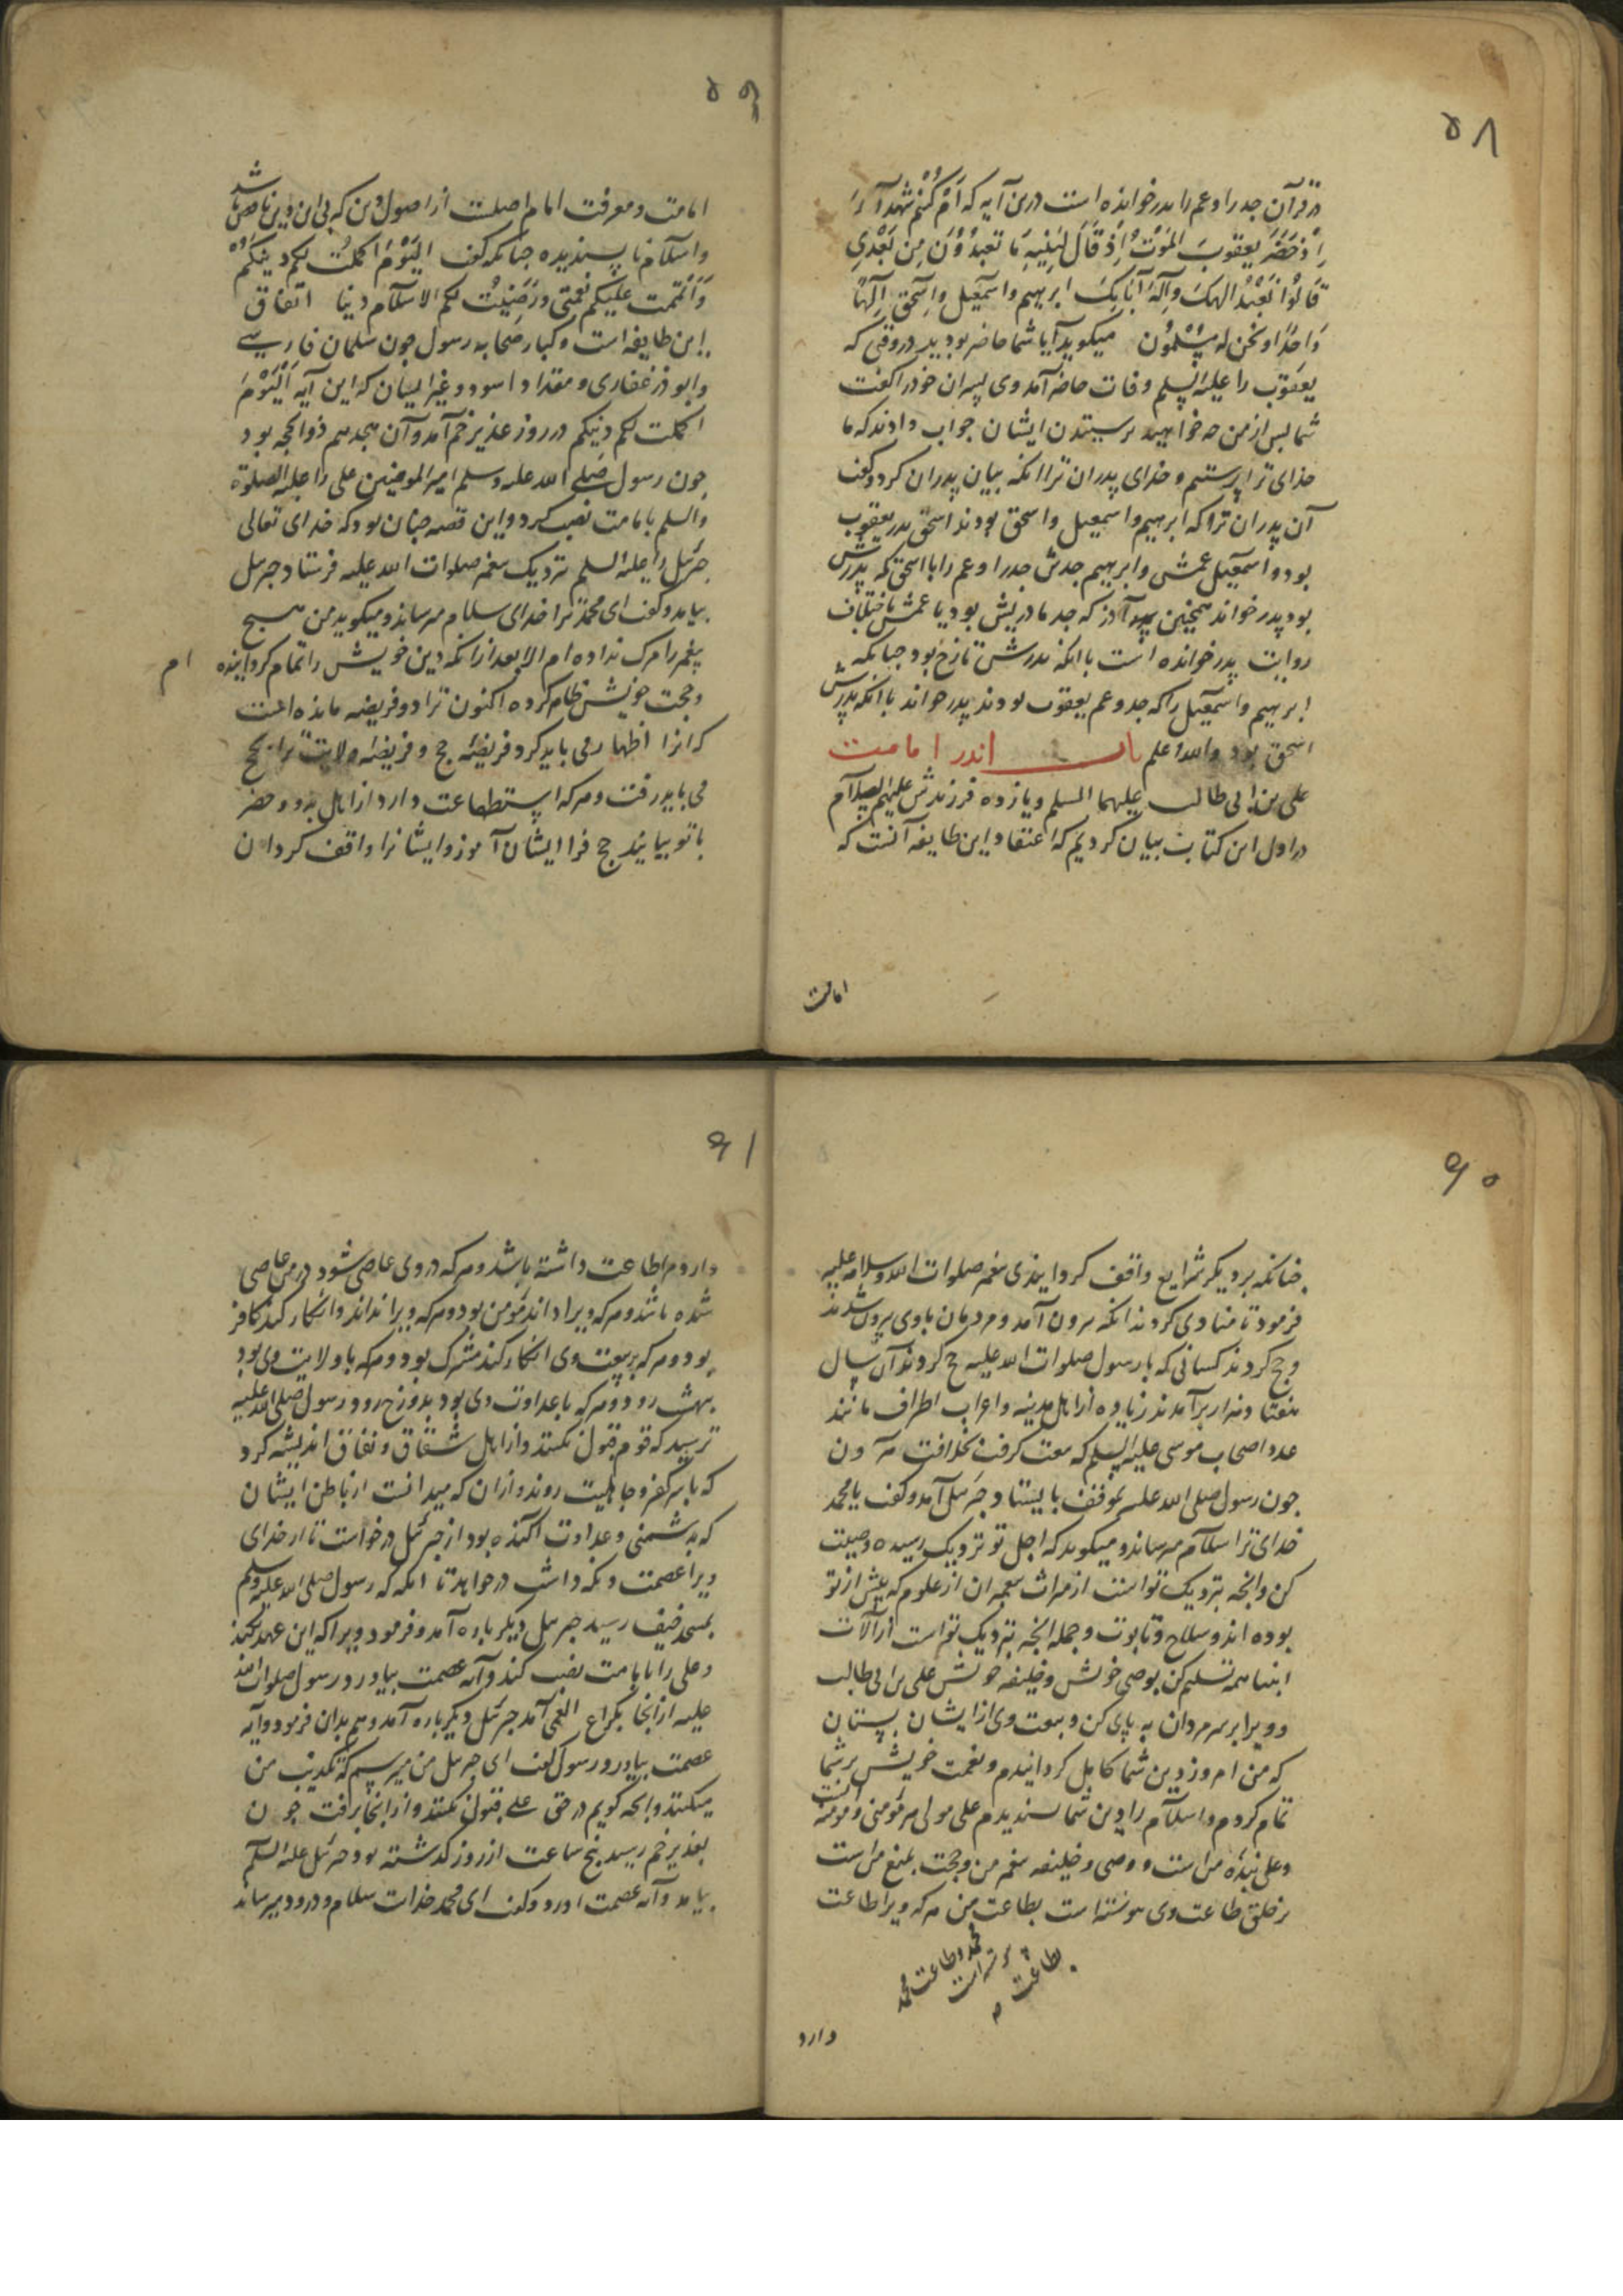 ۵۸
در قرآن جد را و عم را پدر خوانده است درین آیه که اَمْ کُنْتُم شُهَدآءَ
اِذْ حَضَرَ یعقوبَ المَوْتُ اِذْ قَالَ لِبَنِیْهِ مَا تعبدُوْنَ مِن بَعْدِی
قَالُوْا نَعْبُدُ الهکَ وَاِلَهَ آبَائِکَ ابرهیم واسمٰعیل واِسحٰق اِلٰهًا
وَاحدًا ونحن له مُسْلِمُون میکوید آیا شما حاضر بودید در وقتی که
یعقوب را علیه السلم وفات حاضر آمد وی پسران خود را کفت
شما پس از من چه خواهید پرستیدن ایشان جواب دادند که ما
خدای ترا پرستیم و خدای پدران ترا انکه بیان پدران کرد و کفت
آن پدران ترا که ابرهیم واسمعیل واسحق بودند اسحق پدر یعقوب
بود و اسمٰعیل عمش وابرهیم جدش جد را وعم را با اسحق که پدرش
بود پدر خواند همچنین آزر که جد مادریش بود یا عمش باختلاف
روایت پدر خوانده است با انکه پدرش تارخ بود چنانکه
ابرهیم واسمٰعیل را که جد وعم یعقوب بودند پدر خواند با انکه پدرش
اسحق بود والله اعلم باب اندر امامت
علی بن ابی طالب علیهما السلم ویازده فرزندش علیهم السلام
در اول این کتاب بیان کردیم که اعتقاد این طایفه آنست که
امامت
۵۹
امامت ومعرفت امام اصلست از اصول دین که بی این دین ناقص باشد
واسلام ناپسندیده چنانکه کفت الیَوْمَ اکملتُ لکم دینکمْ
وَاَتْمَمت علیکم نعمتی ورَضِیْتُ لکم الاسلام دینا اتفاق
این طایفه است وکبار صحابه رسول چون سلمان فارسی
وابوذر غفاری ومقداد اسود وغیر ایشان که این آیه اَلْیَوْمَ
اکملت لکم دینکم در روز غدیر خم آمد وآن هجدهم ذوالحجه بود
چون رسول صلی الله علیه وسلم امیر المومنین علی را علیه الصلوة
والسلم بامامت نصب کرد واین قصه چنان بود که خدای تعالی
جبرئیل را علیه السلم نزدیک پیغمبر صلوات الله علیه فرستاد جبرئیل
بیامد وکفت ای محمد ترا خدای سلام میرساند ومیکوید من هیچ
پیغمبر را مرک نداده ام الا بعد از انکه دین خویش را تمام کردانیده ام
وحجت خویش ظاهر کرده اکنون ترا دو فریضه مانده است
که انرا اظهار می باید کرد فریضهٔ حج وفریضهٔ ولایت ترا بحج
می باید رفت وهر که استطاعت دارد از اهل بدو وحضر
با تو بیایند حج فرا ایشان آموز وایشانرا واقف کردان
۶۰
چنانکه بر دیکر شرایع واقف کردانیدی پیغمبر صلوات الله وسلامه علیه
فرمود تا منادی کردند انکه بیرون آمد ومردمان با وی بیرون شدند
وحج کردند کسانی که با رسول صلوات الله علیه حج کردند آن سال
هفتاد هزار برآمدند زیاده از اهل مدینه واعراب اطراف مانند
عدد اصحاب موسی علیه السلم که بیعت کرفت بخلافت هرون
چون رسول صلی الله علیه بموقف بایستاد جبرئیل آمد وکفت یا محمد
خدای ترا سلام میرساند ومیکوید که اجل تو نزدیک رسیده وصیت
کن وانچه نزدیک تو است از میراث پیغمبران از علوم که پیش از تو
بوده اند وسلاح وتابوت وجمله انچه نزدیک تو است از آلات
انبیا همه تسلیم کن بوصی خویش وخلیفه خویش علی بن ابی طالب
وویرا برسر مردان به پای کن وبیعت وی از ایشان بستان
که من امروز دین شما کامل کردانیدم ونعمت خویش بر شما
تمام کردم واسلام را دین شما پسندیدم علی مولی هر مؤمنی ومؤمنه است
وعلی بندهٔ من است ووصی وخلیفه پیغمبر من وحجت بلیغ من است
بر خلق طاعت وی پیوسته است بطاعت من هر که ویرا طاعت
بطاعت محمد وطاعت محمد
پیوسته است
دارد
۶۱
دارد مرا طاعت داشته باشد وهر که در وی عاصی شود در من عاصی
شده باشد وهر که ویرا داند مؤمن بود وهر که ویرا نداند وانکار کند کافر
بود وهر که بر بیعت وی انکار کند مشرک بود وهر که با ولایت وی بود
ببهشت رود وهر که با عداوت وی بود بدوزخ رود رسول صلی الله علیه
ترسید که قوم قبول نکنند واز اهل شقاق ونفاق اندیشه کرد
که با سر کفر وجاهلیت روند وازان که میدانست از باطن ایشان
که بدشمنی وعداوت اکنده بود از جبرئیل درخواست تا از خدای
ویرا عصمت ونکه داشت درخواهد تا انکه که رسول صلی الله علیه وسلم
بمسجد خیف رسید جبرئیل دیکر باره آمد وفرمود ویرا که این عهد کند
وعلی را بامامت نصب کند وآیه عصمت بیاورد رسول صلوات الله
علیه از انجا بکراع الغمیم آمد جبرئیل دیکر باره آمد وهم بدان فرمود وآیه
عصمت بیاورد رسول کفت ای جبرئیل من میترسم که تکذیب من
میکنند وانچه کویم در حق علی قبول نکنند واز انجا برفت چون
بغدیر خم رسید پنج ساعت از روز کذشته بود جبرئیل علیه السلام
بیامد وآیه عصمت آورد وکفت ای محمد خدات سلام ودرود میرساند